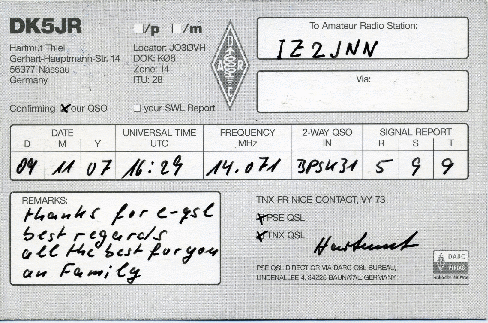 DK5JR
/p /m
Hartmut Thiel
Gerhart-Hauptmann-Str. 14
56377 Nassau
Germany
Locator: JO30VH
DOK: K08
Zone: 14
ITU: 28
DARC
To Amateur Radio Station:
IZ2JNN
Via:
Confirming Your QSO
your SWL Report
DATE
D M Y
UNIVERSAL TIME
UTC
FREQUENCY
MHz
2-WAY QSO
IN
SIGNAL REPORT
R S T
04 11 07 16:29 14.071 BPSK31 5 9 9
REMARKS:
thanks for e-qsl
best regards
all the best for you
an Family
TNX FR NICE CONTACT, VY 73
PSE QSL
TNX QSL
Hartmut
PSE QSL DIRECT OR VIA DARC QSL BUREAU,
LINDENALLEE 4, 34225 BAUNATAL, GERMANY
DARC